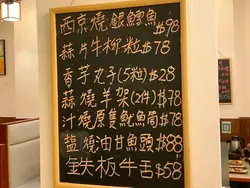 西京燒銀鱈魚$98
蒜片牛柳粒$78
香芋丸子(5粒)$28
蒜燒羊架(2件)$78
汁燒原隻魷魚筒$78
鹽燒油甘魚頭$88
鉄板牛舌$58